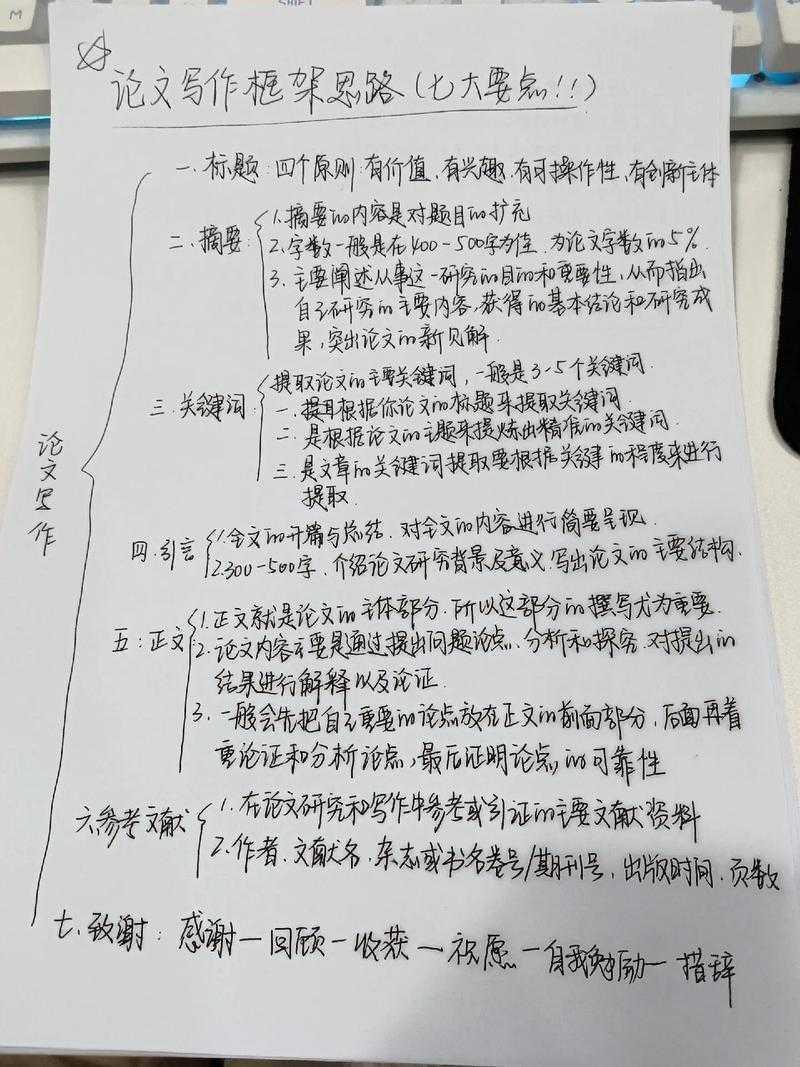 论文写作框架思路(七大要点!!)
一、标题:四个原则:有价值、有兴趣、有可操作性、有创新主体
二、摘要:
1.摘要的内容是对题目的扩充
2.字数一般是在400-500字为佳.为论文字数的5%.
3.主要阐述从事这一研究的目的和重要性,从而指出
自己研究的主要内容,获得的基本结论和研究成
果,突出论文的新见解.
三.关键词
提取论文的主要关键词,一般是3-5个关键词.
一.提取根据你论文的标题来提取关键词.
二.是根据论文的主题来提炼出精准的关键词.
三.是文章的关键词提取要根据关键的程度来进行
提取.
论文写作
四.引言
1.全文的开篇与总结.对全文的内容进行简要呈现.
2.300-500字.介绍论文研究背景及意义.写出论文的主要结构.
五:正文
1.正文就是论文的主体部分.所以这部分的撰写尤为重要.
2.论文内容主要是通过提出问题论点、分析和探究.对提出的
结果进行解释以及论证.
3.一般会先把自己重要的论点放在正文的前面部分,后面再着
重论证和分析论点,最后证明论点的可靠性
六参考文献
1.在论文研究和写作中参考或引证的主要文献资料
2.作者、文献名、杂志或书名卷号/期刊号,出版时间.页数
七.致谢:感谢—回顾—收获—祝愿—自我勉励—措辞